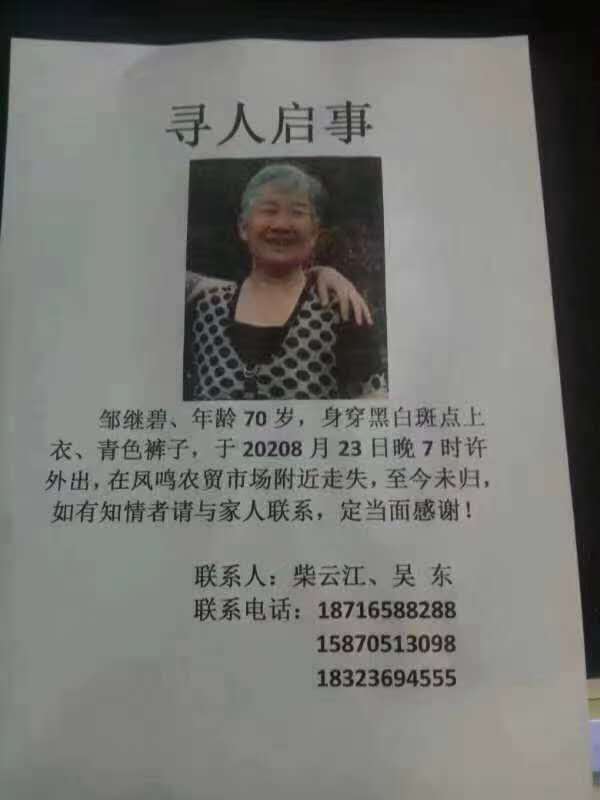 寻人启事
邹继碧、年龄 70 岁，身穿黑白斑点上
衣、青色裤子，于 20208 月 23 日晚 7 时许
外出，在凤鸣农贸市场附近走失，至今未归，
如有知情者请与家人联系，定当面感谢！
联系人：柴云江、吴 东
联系电话：18716588288
15870513098
18323694555